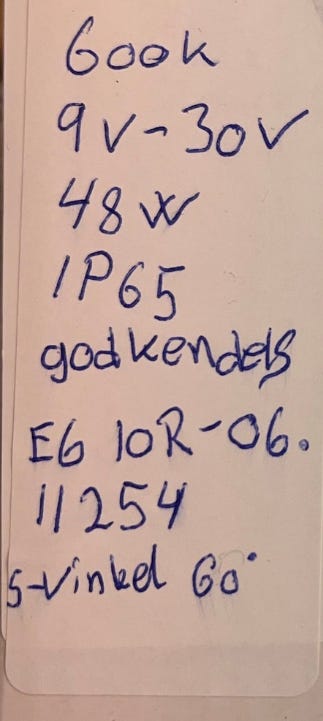 600k
9V-30V
48W
IP65
godkendels
E6 10R-06.
11254
S-Vinkel 60°